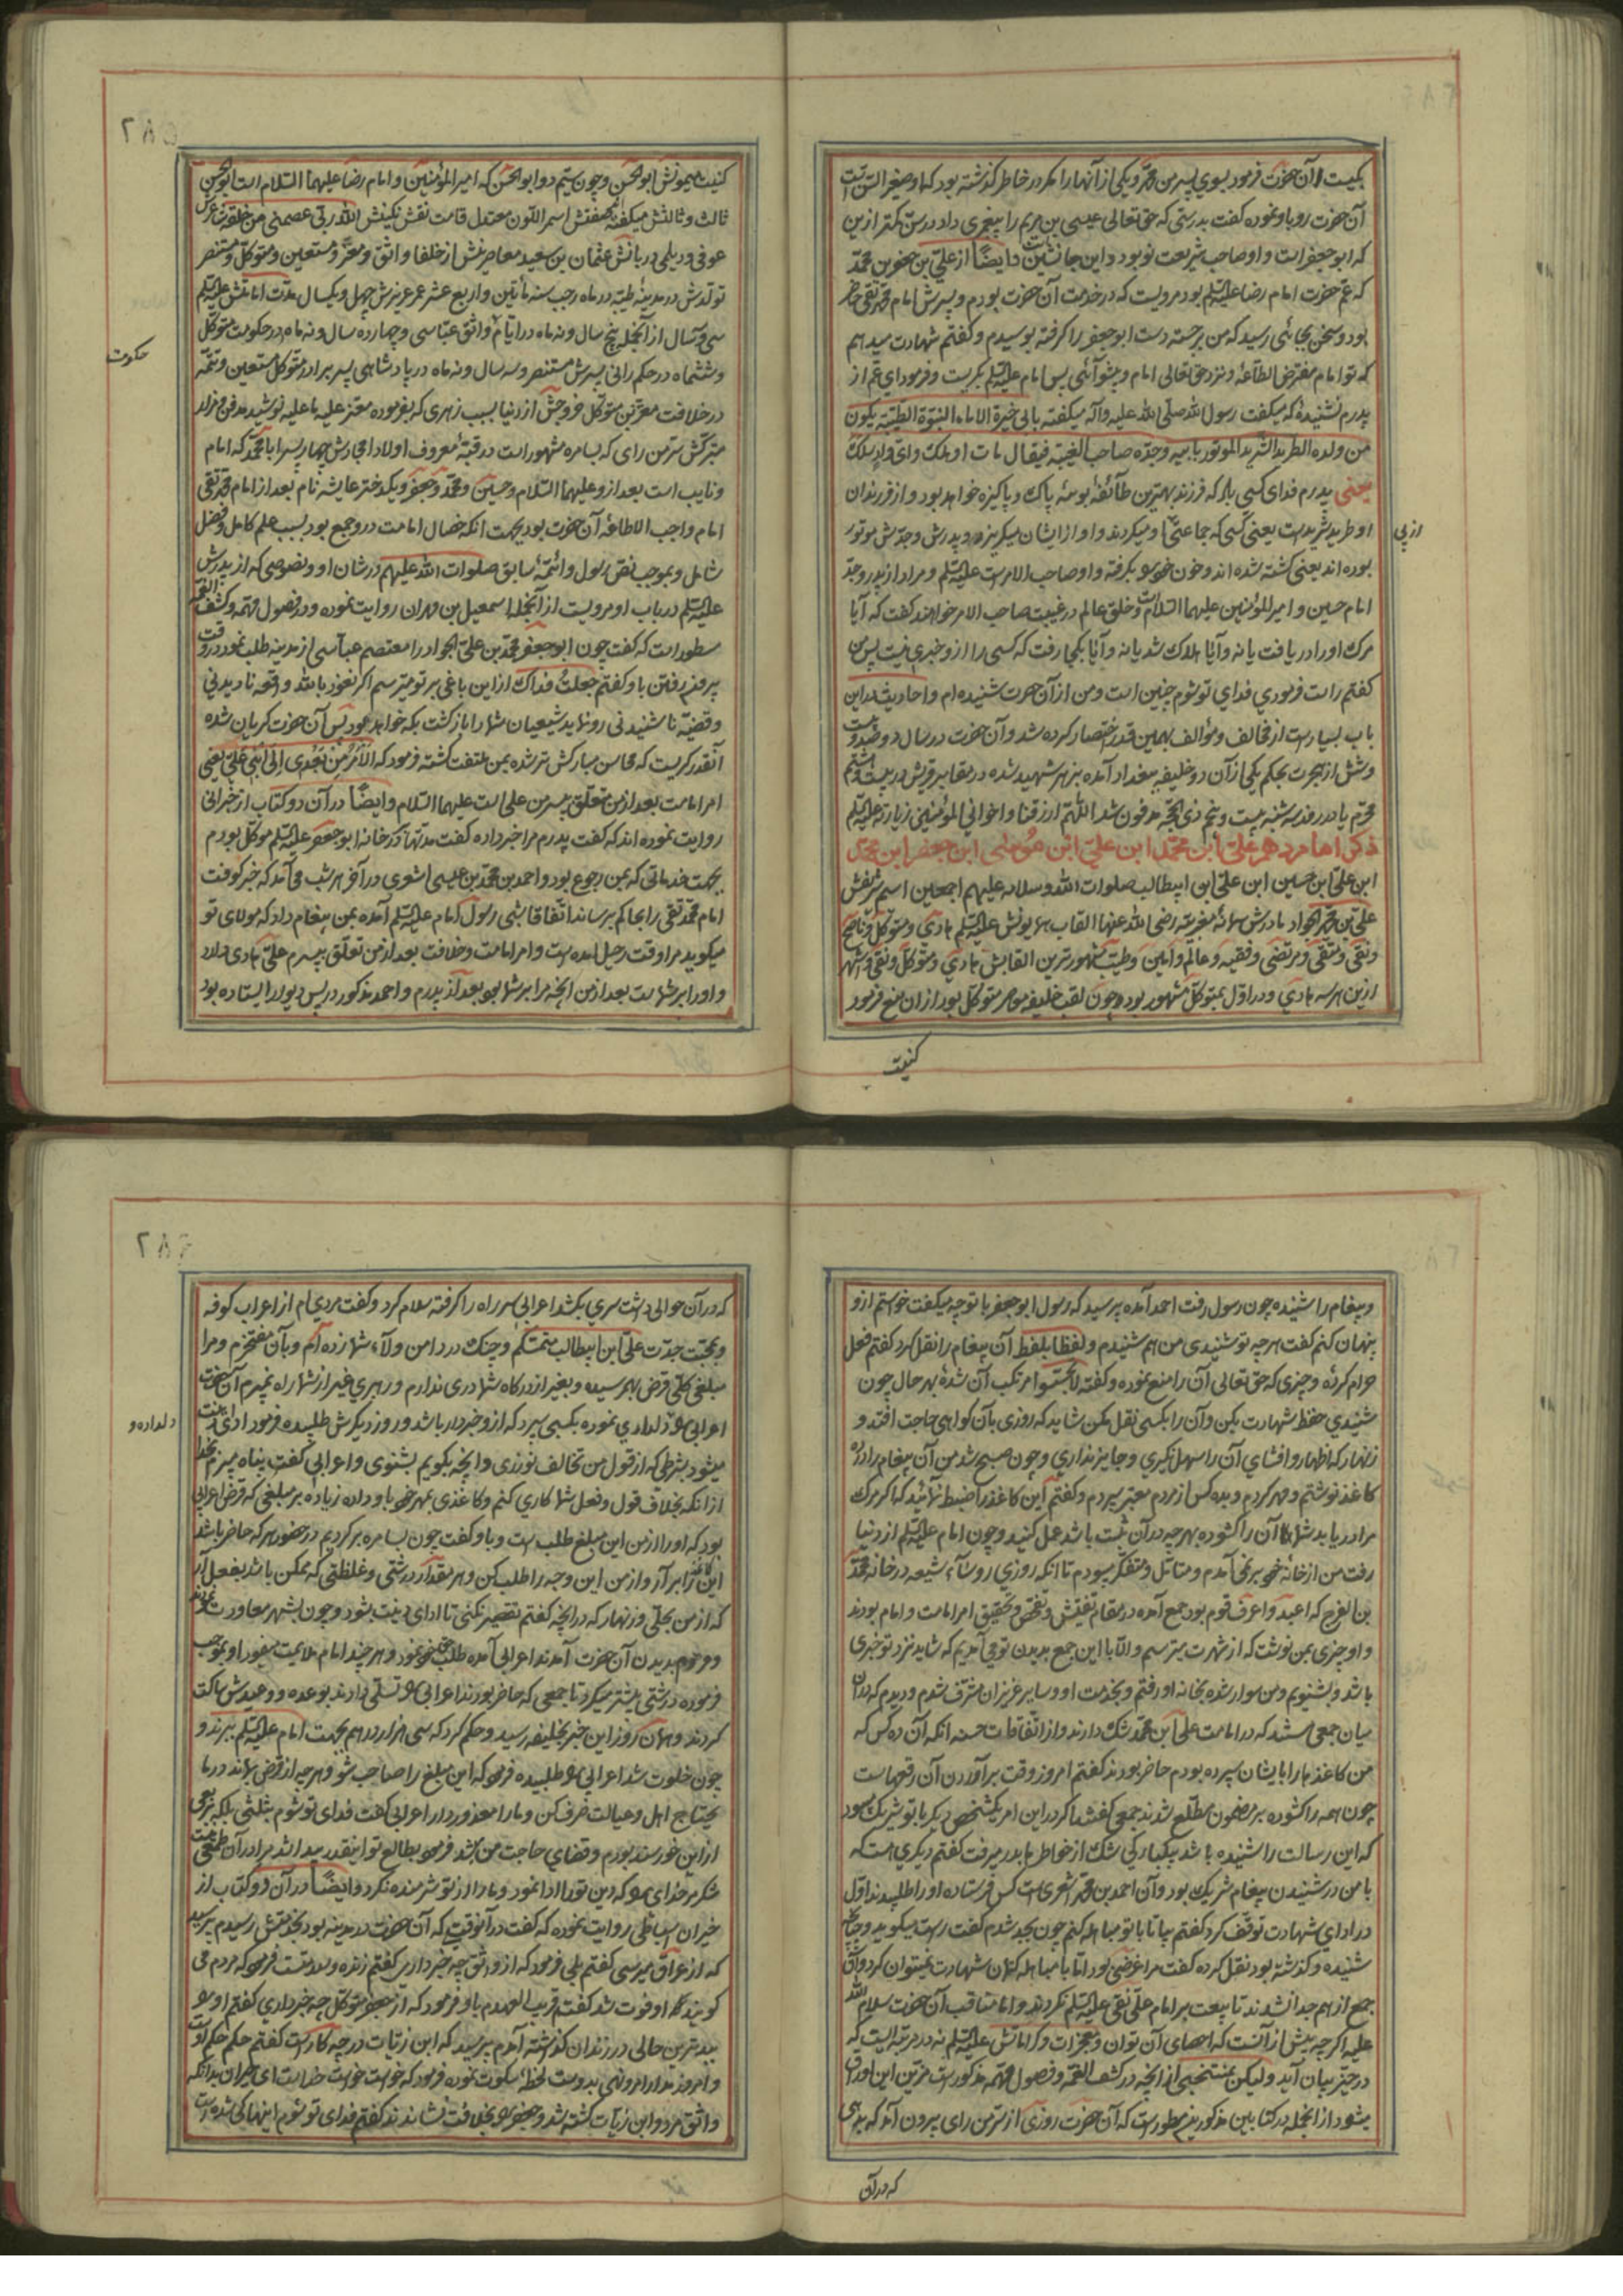 بکیست آن حضرت فرمود بسوی پسر من محمد و یکی از آنها را مکر در خاطر گذشته بود که او صغیر السن است
آن حضرت رو باو نموده گفت بدرستی که حق تعالی عیسی بن مریم را پیغمبری داد در سن کمتر ازین
که ابو جعفر است و او صاحب شریعت نو بود و این جانشین و ایضاً از علی بن جعفر بن محمد
که عم حضرت امام رضا علیه السلم بود مرویست که در خدمت آن حضرت بودم و پسرش امام محمد تقی حاضر
بود و سخن بجائی رسید که من برجسته دست ابو جعفر را گرفته بوسیدم و گفتم شهادت میدهم
که تو امام مفترض الطاعة و نزد حق تعالی امام و پیشوائی پس امام علیه السلم بکریست و فرمود ای عم از
پدرم نشنیدهٔ که میکفت رسول الله صلی الله علیه و آله میکفته بابی خیرة الاماء النبوة الطیبة یکون
من ولده الطرید الشرید الموتور بابیه وجده صاحب الغیبة فیقال مات او هلک وای واد سلک
یعنی پدرم فدای کسی باد که فرزند بهترین طائفهٔ بوسه پاک و پاکیزه خواهد بود و از فرزندان
او طرید شرید است یعنی کسی که جماعتی او میکردند و او از ایشان میکریزد و پدرش و جدش موتور
از پی
بوده اند یعنی کشته شده اند و خون خود بکرفته و او صاحب الامر است علیه السلم و مراد از پدر و جد
امام حسین و امیر المؤمنین علیهما السلام است و خلق عالم در غیبت صاحب الامر خواهند گفت که آیا
مرک او را دریافت یا نه و آیا هلاک شد یا نه و آیا بکجا رفت که کسی را از و خبری نیست پس من
گفتم راست فرمودی فدای تو شوم چنین است و من از آن حضرت شنیده ام و احادیث در این
باب بسیار است از مخالف و مؤالف بهمین قدر اختصار کرده شد و آن حضرت در سال دوصد و بیست
و شش از هجرت بحکم یکی از آن دو خلیفه ببغداد آمده بزهر شهید شده در مقابر قریش در بیست و هشتم
محرم یا در روز سه شنبه بیست و پنجم ذی الحجه مدفون شد اللهم ارزقنا و اخوانی المؤمنین زیارته علیه السلم
ذکر امام دهم علی ابن محمد ابن علی ابن موسی ابن جعفر ابن محمد
ابن علی ابن حسین ابن علی ابن ابیطالب صلوات الله و سلامه علیهم اجمعین اسم شریفش
علی بن محمد الجواد مادرش سمانه مغربیه رضی الله عنها القاب همایونش علیه السلم هادی و متوکل و ناصح
و نقی و متقی و مرتضی و فقیه و عالم و امین و طیب مشهورترین القابش هادی و متوکل و نقی و اشهر
ازین هر سه هادی و در اول بمتوکل مشهور بود و چون لقب خلیفه عصر متوکل بود از ان منع فرمود
کنیت
کنیت همیونش ابو الحسن و چون سیم دو ابو الحسن که امیر المؤمنین و امام رضا علیهما السلام است ابو الحسن
ثالث و ثالثش میکفتند صفتش اسمر اللون معتدل قامت نقش نکینش الله ربی عصمتی من خلقه شاعرش
عوفی و دیلمی دربانش عثمان بن سعید معاصرینش از خلفا واثق و معتز و مستعین و متوکل و منتصر
تولدش در مدینه طیبه در ماه رجب سنه مائتین و اربع عشر عمر عزیزش چهل و یکسال مدت امامتش علیه السلم
سی و سال از آنجمله پنج سال و نه ماه در ایام واثق عباسی و چهارده سال و نه ماه در حکومت متوکل
حکومت
و ششماه در حکم رانی پسرش مستنصر و سه سال و نه ماه در پادشاهی پسر برادر متوکل مستعین و تتمه
در خلافت معتز بن متوکل خروجش از دنیا بسبب زهری که بفرموده معتز علیه ما علیه نوشید مدفن و مزار
متبرکش سر من رای که بسامره مشهور است در قبهٔ معروف اولاد امجادش چهار پسر ابا محمد که امام
و نایب است بعد از و علیهما السلام و حسین و محمد و جعفر و یکدختر عایشه نام بعد از امام محمد تقی
امام واجب الاطاعة آن حضرت بود بجهت انکه خصال امامت در و جمع بود بسبب علم کامل و فضل
شامل و بموجب نص رسول و ائمهٔ سابق صلوات الله علیهم در شان او و نصوصی که از پدرش
علیه السلم در باب او مرویست از آنجمله اسمعیل بن مهران روایت نموده و در فصول مهمه و کشف الغمه
مسطور است که گفت چون ابو جعفر محمد بن علی الجواد را معتصم عباسی از مدینه طلب نمود در وقت
بیرون رفتن باو گفتم جعلت فداک از این یاغی بر تو میترسم اکر نعوذ بالله واقعه نا دیدنی
و قضیهٔ نا شنیدنی رو نماید شیعیان شما را بازگشت بکه خواهد بود پس آن حضرت کریان شده
آنقدر کریست که محاسن مبارکش تر شده بمن ملتفت گشته فرمود که الامر من بعدی الی ابنی علی یعنی
امر امامت بعد از من متعلق بپسر من علی است علیهما السلام و ایضاً در آن دو کتاب از خیرانی
روایت نموده اند که گفت پدرم مرا خبر داده گفت مدتها در خانه ابو جعفر علیه السلم موکل بودم
بجهت خدماتی که بمن رجوع بود و احمد بن محمد بن عیسی اشعری در آخر هر شب می آمد که خبر کوفت
امام محمد تقی را بجاکم برساند اتفاقا شبی رسول امام علیه السلم آمده بمن پیغام داد که مولای تو
میکوید مرا وقت رحیل آمده است و امر امامت و خلافت بعد از من تعلق بپسرم علی هادی دارد
و او را بر شماست بعد از من آنچه مرا بر شما بود بعد از پدرم و احمد مذکور در پس دیوار ایستاده بود
و پیغام را شنیده چون رسول رفت احمد آمده پرسید که رسول ابو جعفر با تو چه میکفت خواستم از و
پنهان کنم گفت هر چه تو شنیدی من هم شنیدم و لفظا بلفظ آن پیغام را نقل کرد گفتم فعل
حرام کردهٔ و چیزی که حق تعالی آن را منع نموده و گفته لا تجسسوا مرتکب آن شدهٔ بهر حال چون
شنیدی حفظ شهادت بکن و آن را بکسی نقل مکن شاید که روزی بآن کواهی حاجت افتد و
زنهار که اظهار و افشای آن را سهل نکیری و جایز نداری و چون صبح شد من آن پیغام را در ده
کاغذ نوشتم و مهر کردم و بده کس از مردم معتبر سپردم و گفتم این کاغذ را ضبط نمائید که اکر مرک
مرا دریابد شما آن را کشوده بهر چه در آن ثبت باشد عمل کنید و چون امام علیه السلم از دنیا
رفت من از خانهٔ خود بر نمی آمدم و متامل و متفکر میبودم تا انکه روزی روساء شیعه در خانه محمد
بن الفرج که اعبد و اعرف قوم بود جمع آمده در مقام تفتیش و تفحص و تحقیق امر امامت و امام بودند
و او چیزی بمن نوشت که از شهرت میترسم و الا با این جمع بدیدن تو می آمدیم که شاید نزد تو خبری
باشد و بشنویم و من سوار شده بخانه او رفتم و بخدمت او و سایر عزیزان مشرف شدم و دیدم که در آن
میان جمعی هستند که در امامت علی ابن محمد شک دارند و از اتفاقات حسنه انکه آن ده کس که
من کاغذها را بایشان سپرده بودم حاضر بودند گفتم امروز وقت بر آوردن آن رقعهاست
چون همه را کشوده بر مضمون مطلع شدند جمعی گفتند اکر در این امر یکشخص دیکر با تو شریک میبود
که این رسالت را شنیده باشد بیکبارکی شک از خاطر ما بدر میرفت گفتم دیکری هست که
با من در شنیدن پیغام شریک بود و آن احمد بن محمد اشعری است کس فرستاده او را طلبیدند اول
در ادای شهادت توقف کرد گفتم بیا تا با تو مباهله کنم چون بجد شدم گفت راست میکوید و آنچه
شنیده و کذشته بود نقل کرده گفت مرا غرضی بود اما با مباهله کتمان شهادت نمیتوان کرد و آن
جمع از هم جدا نشدند تا بیعت بر امام علی نقی علیه السلم نکردند و اما مناقب آن حضرت سلام الله
علیه اکر چه بیش از آنست که احصای آن توان و معجزات و کراماتش علیه السلم نه در مرتبه ایست که
در حیز بیان آید و لیکن بمنتخبی از آنچه در کشف الغمه و فصول مهمه مذکور است مزین این اوراق
میشود از انجمله در کتابین مذکورین مسطور است که آن حضرت روزی از سر من رای بیرون آمد که بدهی
که در آن
که در آن حوالی داشت سری بکشد اعرابی سر راه را کرفته سلام کرد و گفت مردی ام از اعراب کوفه
و بمحبت جدت علی ابن ابیطالب متمسکم و چنک در دامن ولاء شما زده ام و بآن مفتخرم و مرا
مبلغی کلی قرض بهم رسیده و بغیر از درکاه شما دری ندارم و رهبری غیر از شما راه نمیبرم آن حضرت
اعرابی را دلداری نموده بکسی سپرد که از و خبردار باشد و روز دیکرش طلبیده فرمود ادای دینت
دلداده و
میشود بشرطی که از قول من تخالف نورزی و آنچه بکویم بشنوی و اعرابی گفت پناه میبرم بخدا
از انکه بخلاف قول و فعل شما کاری کنم و کاغذی بمهر خود باو داده زیاده بر مبلغی که قرض اعرابی
بود که او را از من این مبلغ طلب است و باو گفت چون بسامره بر کردیم در حضور هر که حاضر باشد
این کاغذ را بر آر و از من این وجه را طلب کن و هر مقدار درشتی و غلظتی که ممکن باشد بفعل آر
که از من بحلی و زنهار که در انچه گفتم تقصیر نکنی تا ادای دینت بشود و چون بشهر معاودت نمودند
و مردم بدیدن آن حضرت آمدند اعرابی آمده طلب حق خود نمود و هر چند امام ملایمت میفرمود او بموجب
فرموده درشتی بیشتر میکرد تا جمعی که حاضر بودند اعرابی را تسلی دادند بوعده و وعیدش ساکت
کردند و همان روز این خبر بخلیفه رسید و حکم کرد که سی هزار درهم بجهت امام علیه السلم ببرند و
چون خلوت شد اعرابی را طلبیده فرمود که این مبلغ را صاحب شو و هر چه از قرض بماند در ما
یحتاج اهل و عیالت صرف کن و ما را معذور دار اعرابی گفت فدای تو شوم بثلثی بلکه بربعی
ازاین خورسند بودم و قضای حاجت من میشد فرمود بطالع تو اینقدر رسید اشد مرا در آن طمعی نیست
شکر مر خدای را که دین تو را ادا نمود و ما را از تو شرمنده نکرد و ایضاً در آن دو کتاب از
خیران اسباطی روایت نموده که گفت در آنوقتی که آن حضرت در مدینه بود بخدمتش رسیدم پرسید
که از عراق میرسی گفتم بلی فرمود که از واثق چه خبر داری گفتم زنده و سلامتست فرمود که مردم می
کویند که او فوت شد گفتم قریب العهدم باو فرمود که از جعفر متوکل چه خبر داری گفتم او را
ببدترین حالی در زندان کذشته آمدم پرسید که ابن زیات در چه کار است گفتم حکم حکم اوست
و امروز مدار امر و نهی بدوست لحظهٔ سکوت نموده فرمود که خواست خواست خداست ای خیران بدانکه
واثق مرد و ابن زیات کشته شد و جعفر را بخلافت نشاندند گفتم فدای تو شوم اینها کی شده است